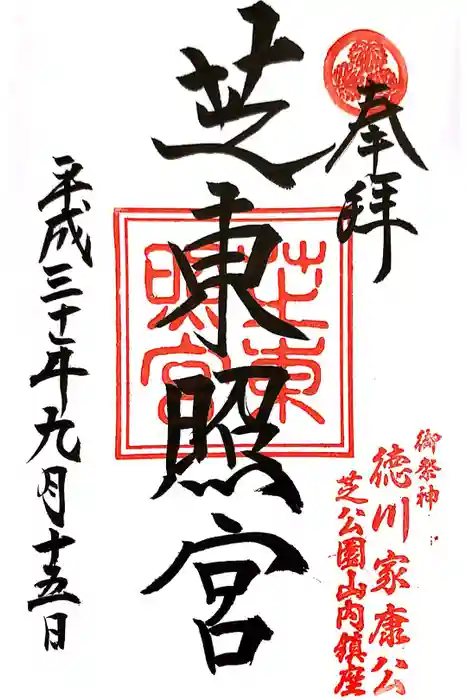 奉拝
御祭神
徳川家康公
芝公園山内鎮座
芝東照宮
芝東照宮
平成三十年九月十五日